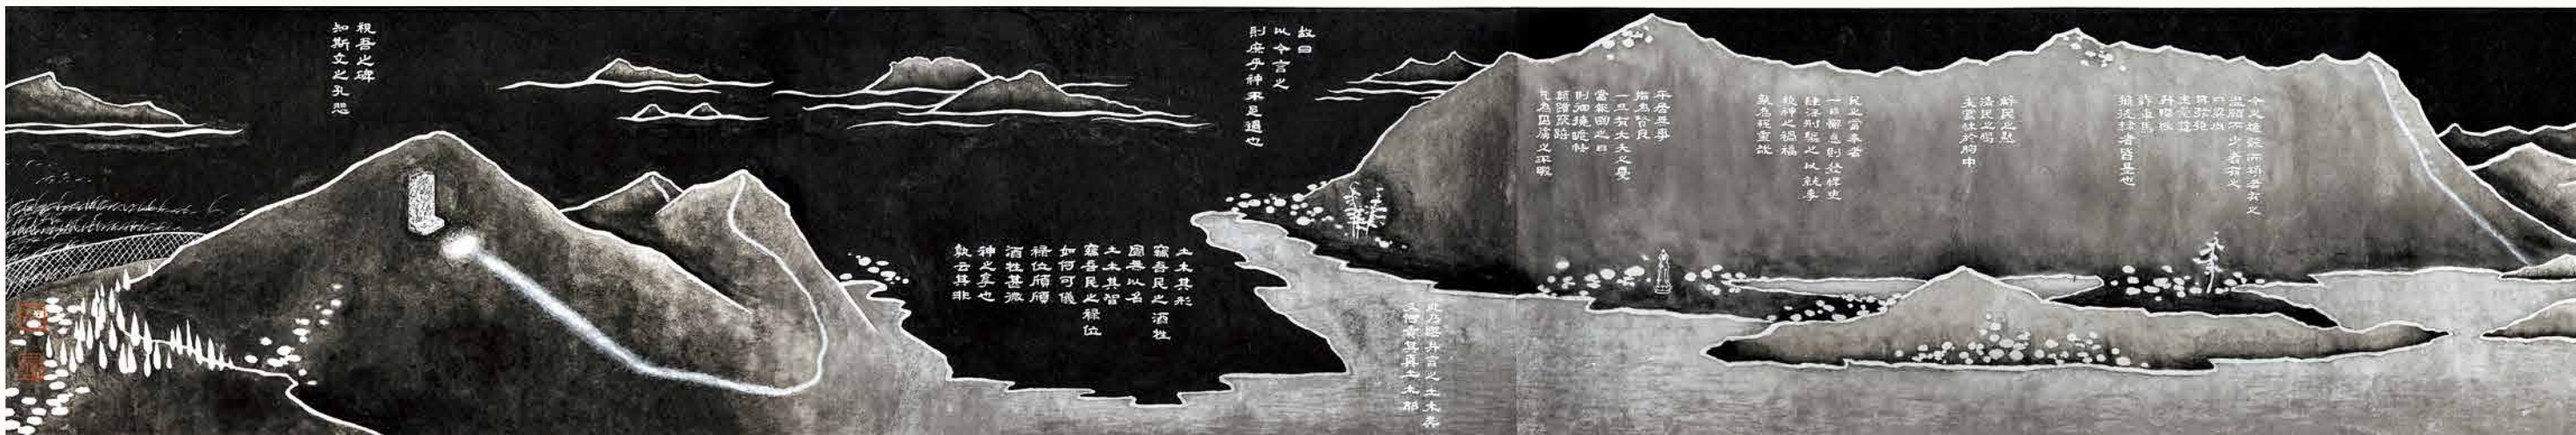 今之雄毅而碩者有之
溫願而少者有之
口粱肉
耳弦匏
坐堂筵
升階級
載車馬
擁徒隸者皆是也
解民之懸
清民之暍
未嘗怵於胸中
民之當奉者
一日懈怠則發悍吏
肆淫刑驅之以就事
較神之禍福
孰為輕重哉
平居無事
指為賢良
一旦有大夫之憂
當報國之日
則佪撓脆怯
顛躓竄踣
乞為囚虜之不暇
此乃纓弁言之土木爾
又何責其真土木耶
故曰
以今言之
則庶乎神不足過也
土木其形
竊吾民之酒牲
固無以名
土木其智
竊吾民之祿位
如何可儀
祿位頎頎
酒牲甚微
神之享也
孰云其非
視吾之碑
知斯文之孔悲